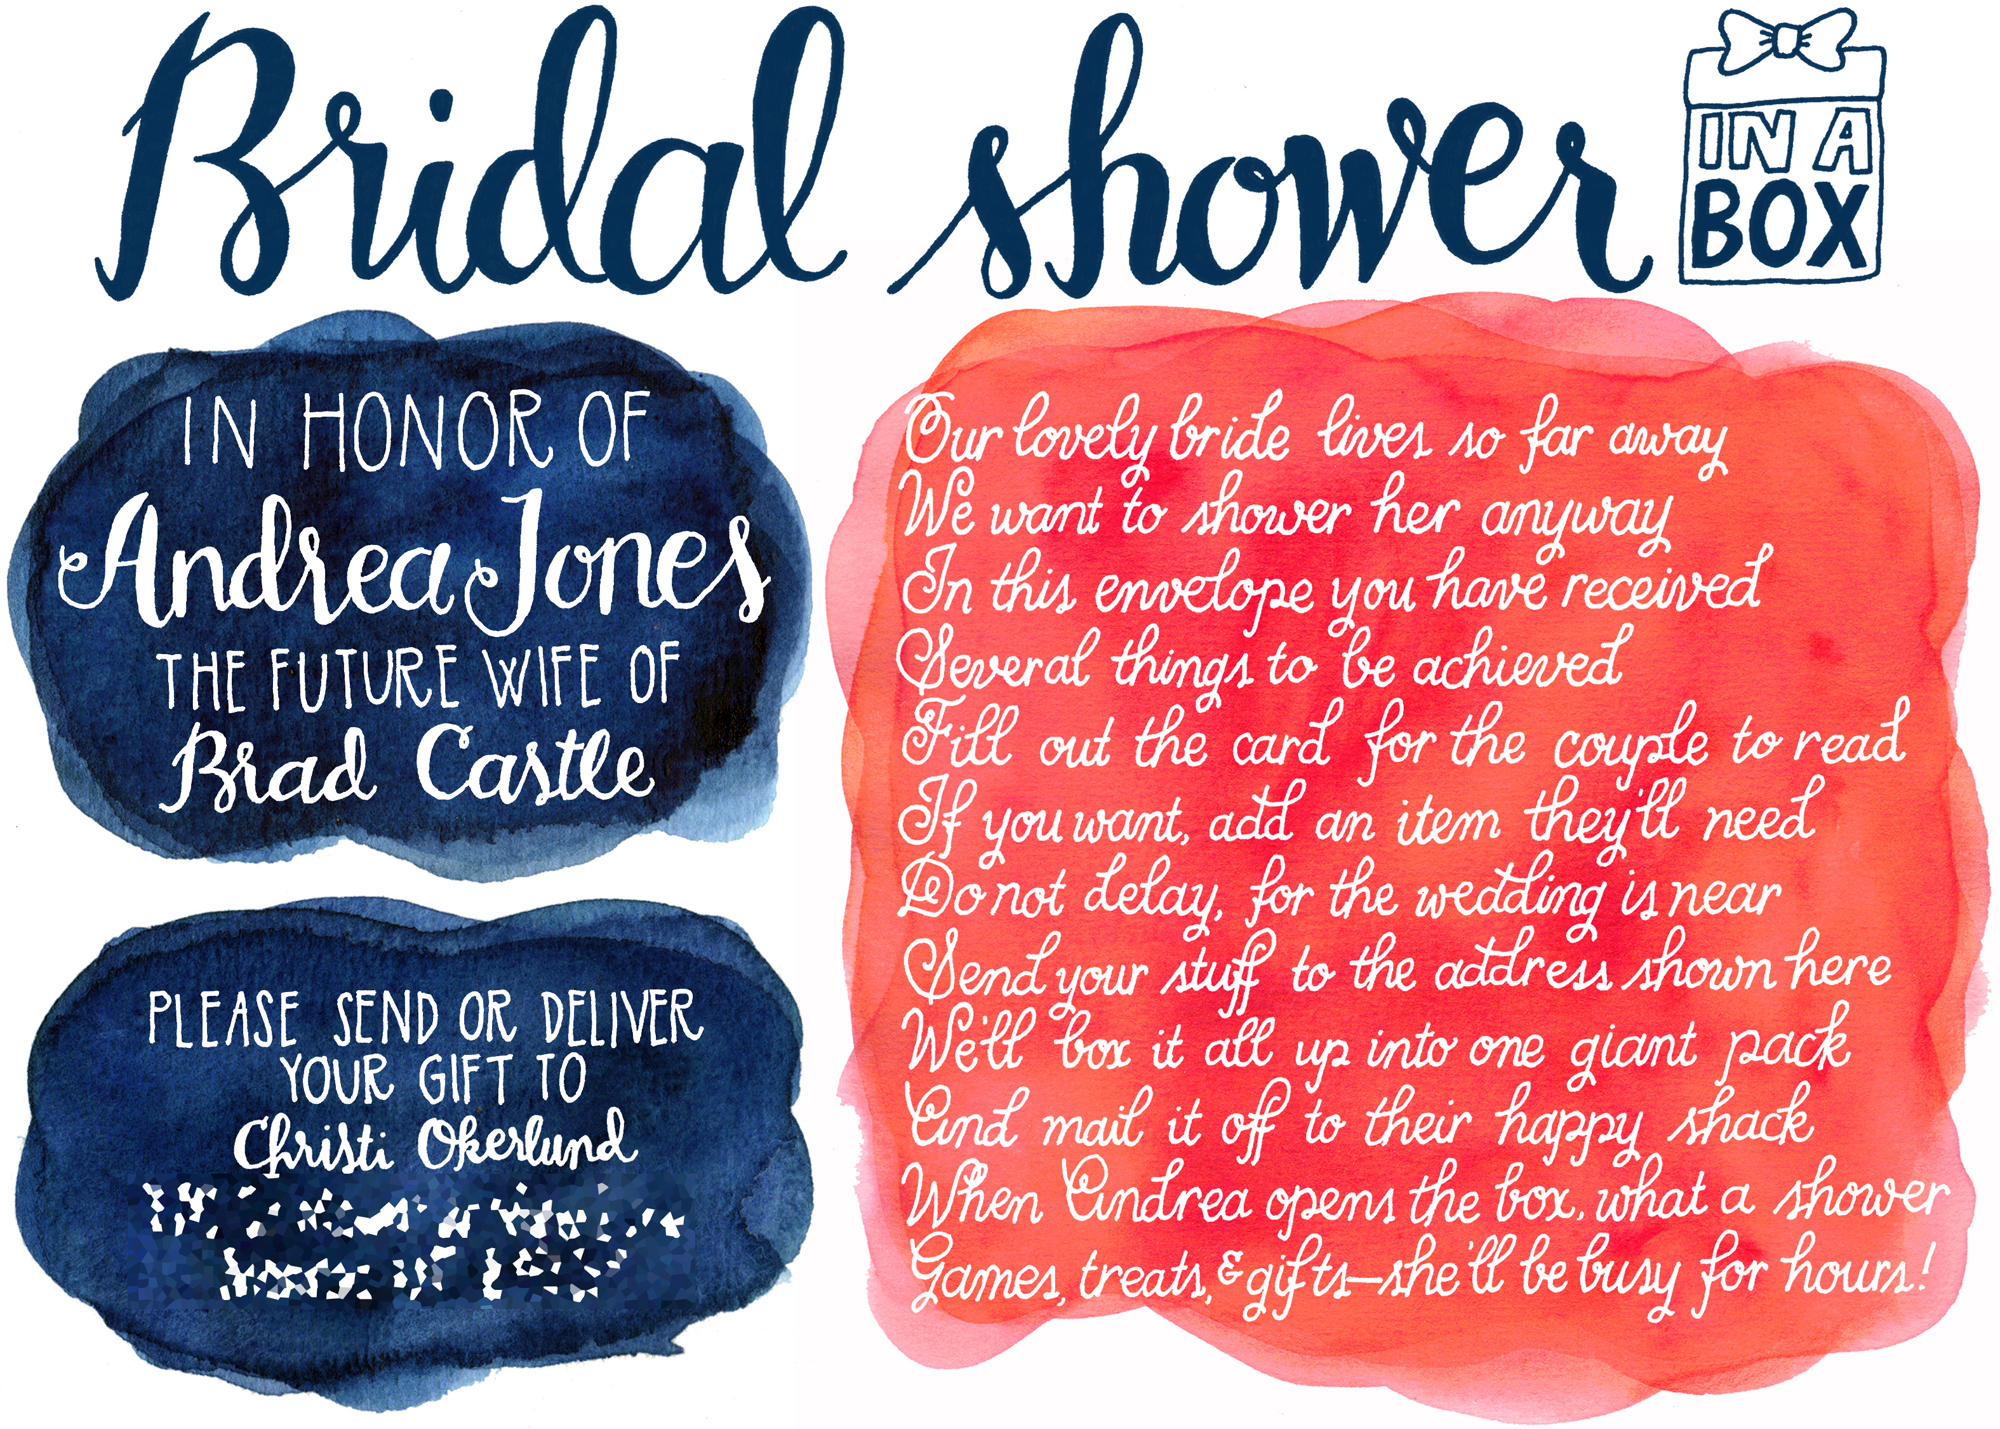 Bridal shower
IN A
BOX
IN HONOR OF
Andrea Jones
THE FUTURE WIFE OF
Brad Castle
PLEASE SEND OR DELIVER
YOUR GIFT TO
Christi Okerlund
Our lovely bride lives so far away
We want to shower her anyway
In this envelope you have received
Several things to be achieved
Fill out the card for the couple to read
If you want, add an item they'll need
Do not delay, for the wedding is near
Send your stuff to the address shown here
We'll box it all up into one giant pack
And mail it off to their happy shack
When Andrea opens the box, what a shower
Games, treats, & gifts—she'll be busy for hours!